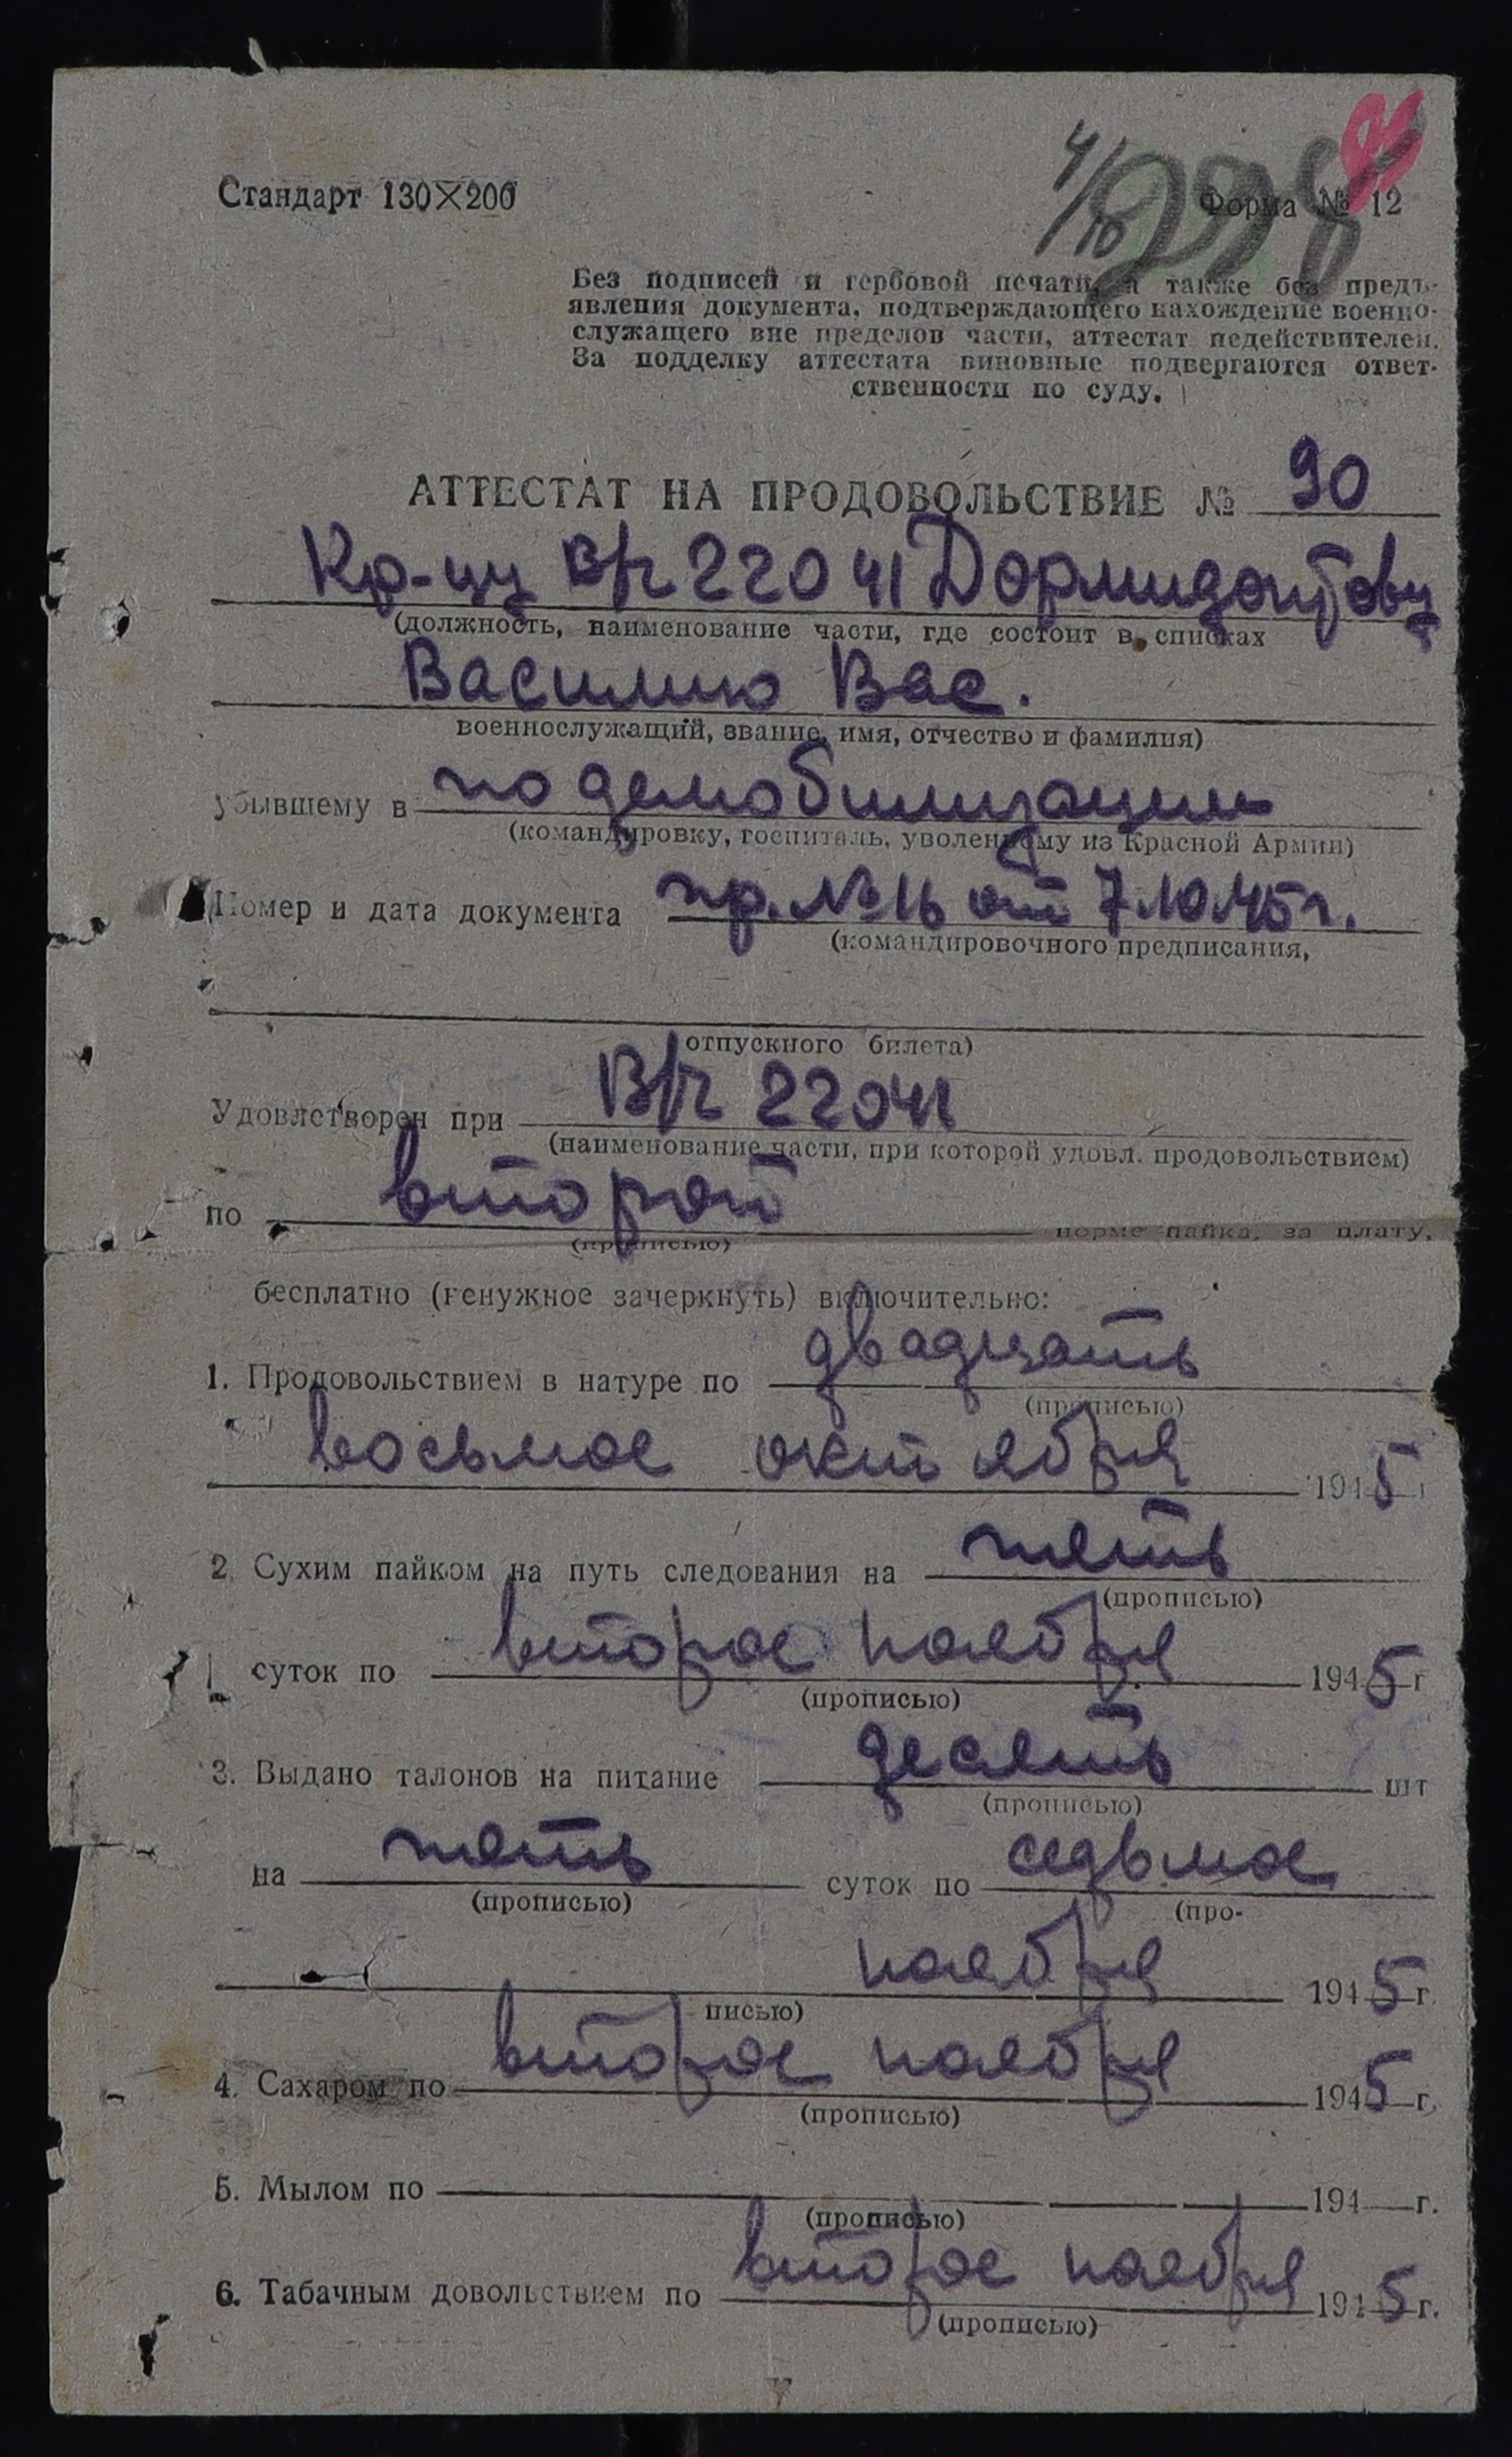 Стандарт 130×200
4/10
228
Форма № 12
Без подписей и гербовой печати, а также без предъ-
явления документа, подтверждающего нахождение военно-
служащего вне пределов части, аттестат недействителен.
За подделку аттестата виновные подвергаются ответ-
ственности по суду.
АТТЕСТАТ НА ПРОДОВОЛЬСТВИЕ № 90
Кр-цу В/ч 22041 Дормидонтову
(должность, наименование части, где состоит в списках
Василию Вас.
военнослужащий, звание, имя, отчество и фамилия)
убывшему в по демобилизации
(командировку, госпиталь, уволенному из Красной Армии)
Номер и дата документа пр. № 16 от 7.10.45 г.
(командировочного предписания,
отпускного билета)
Удовлетворен при В/ч 22041
(наименование части, при которой удовл. продовольствием)
по второй норме пайка, за плату,
(прописью)
бесплатно (ненужное зачеркнуть) включительно:
1. Продовольствием в натуре по двадцать
(прописью)
восьмое октября 1945 г
2. Сухим пайком на путь следования на пять
(прописью)
суток по второе ноября 1945 г
(прописью)
3. Выдано талонов на питание десять шт
(прописью)
на пять суток по седьмое
(прописью) (про-
ноября 1945 г.
писью)
4. Сахаром по второе ноября 1945 г.
(прописью)
5. Мылом по 194 г.
(прописью)
6. Табачным довольствием по второе ноября 1945 г.
(прописью)